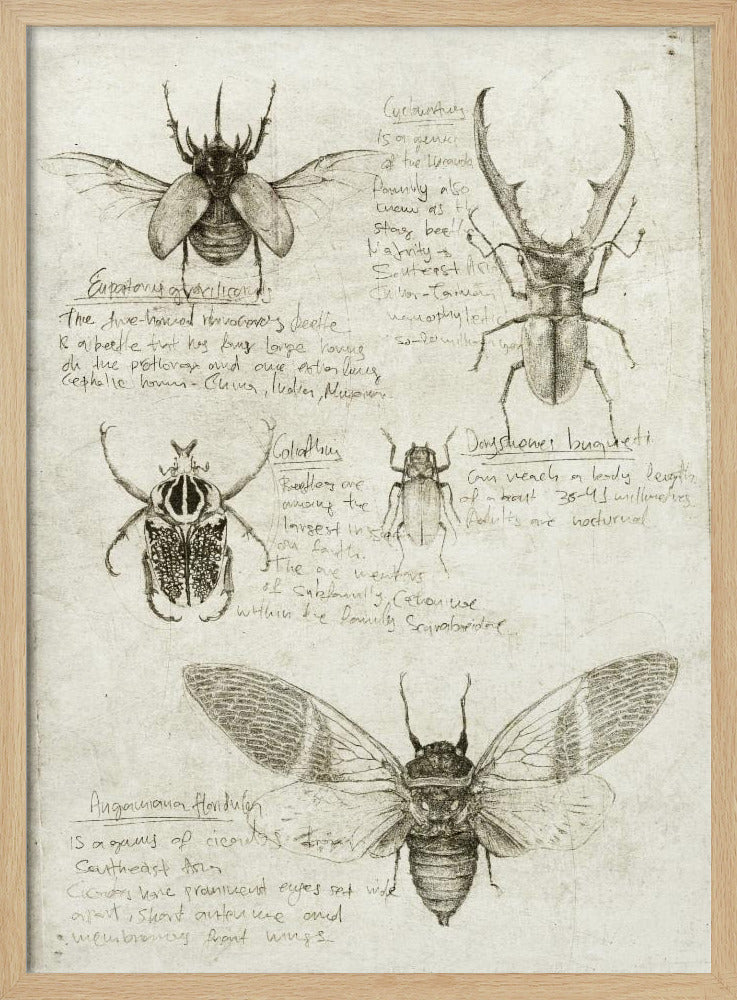 Eupatorus gracilicornis
The five-horned rhinoceros beetle
is a beetle that has four large horns
on the prothorax and one
cephalic horn - China, India,
Cyclommatus
is a genus
of the Lucanidae
family also
known as the
stag beetle
Southeast Asia
Goliathus
Beetles are
among the
largest insects
on Earth.
The are members
of subfamily, Cetoniinae
within the family Scarabaeidae
Dorysthenes buqueti
Can reach a body length
of about 36-41 millimetres
Adults are nocturnal
Angamiana floridula
is a genus of cicadas from
Southeast Asia
Cicadas have prominent eyes set wide
apart, short antennae and
membranous front wings